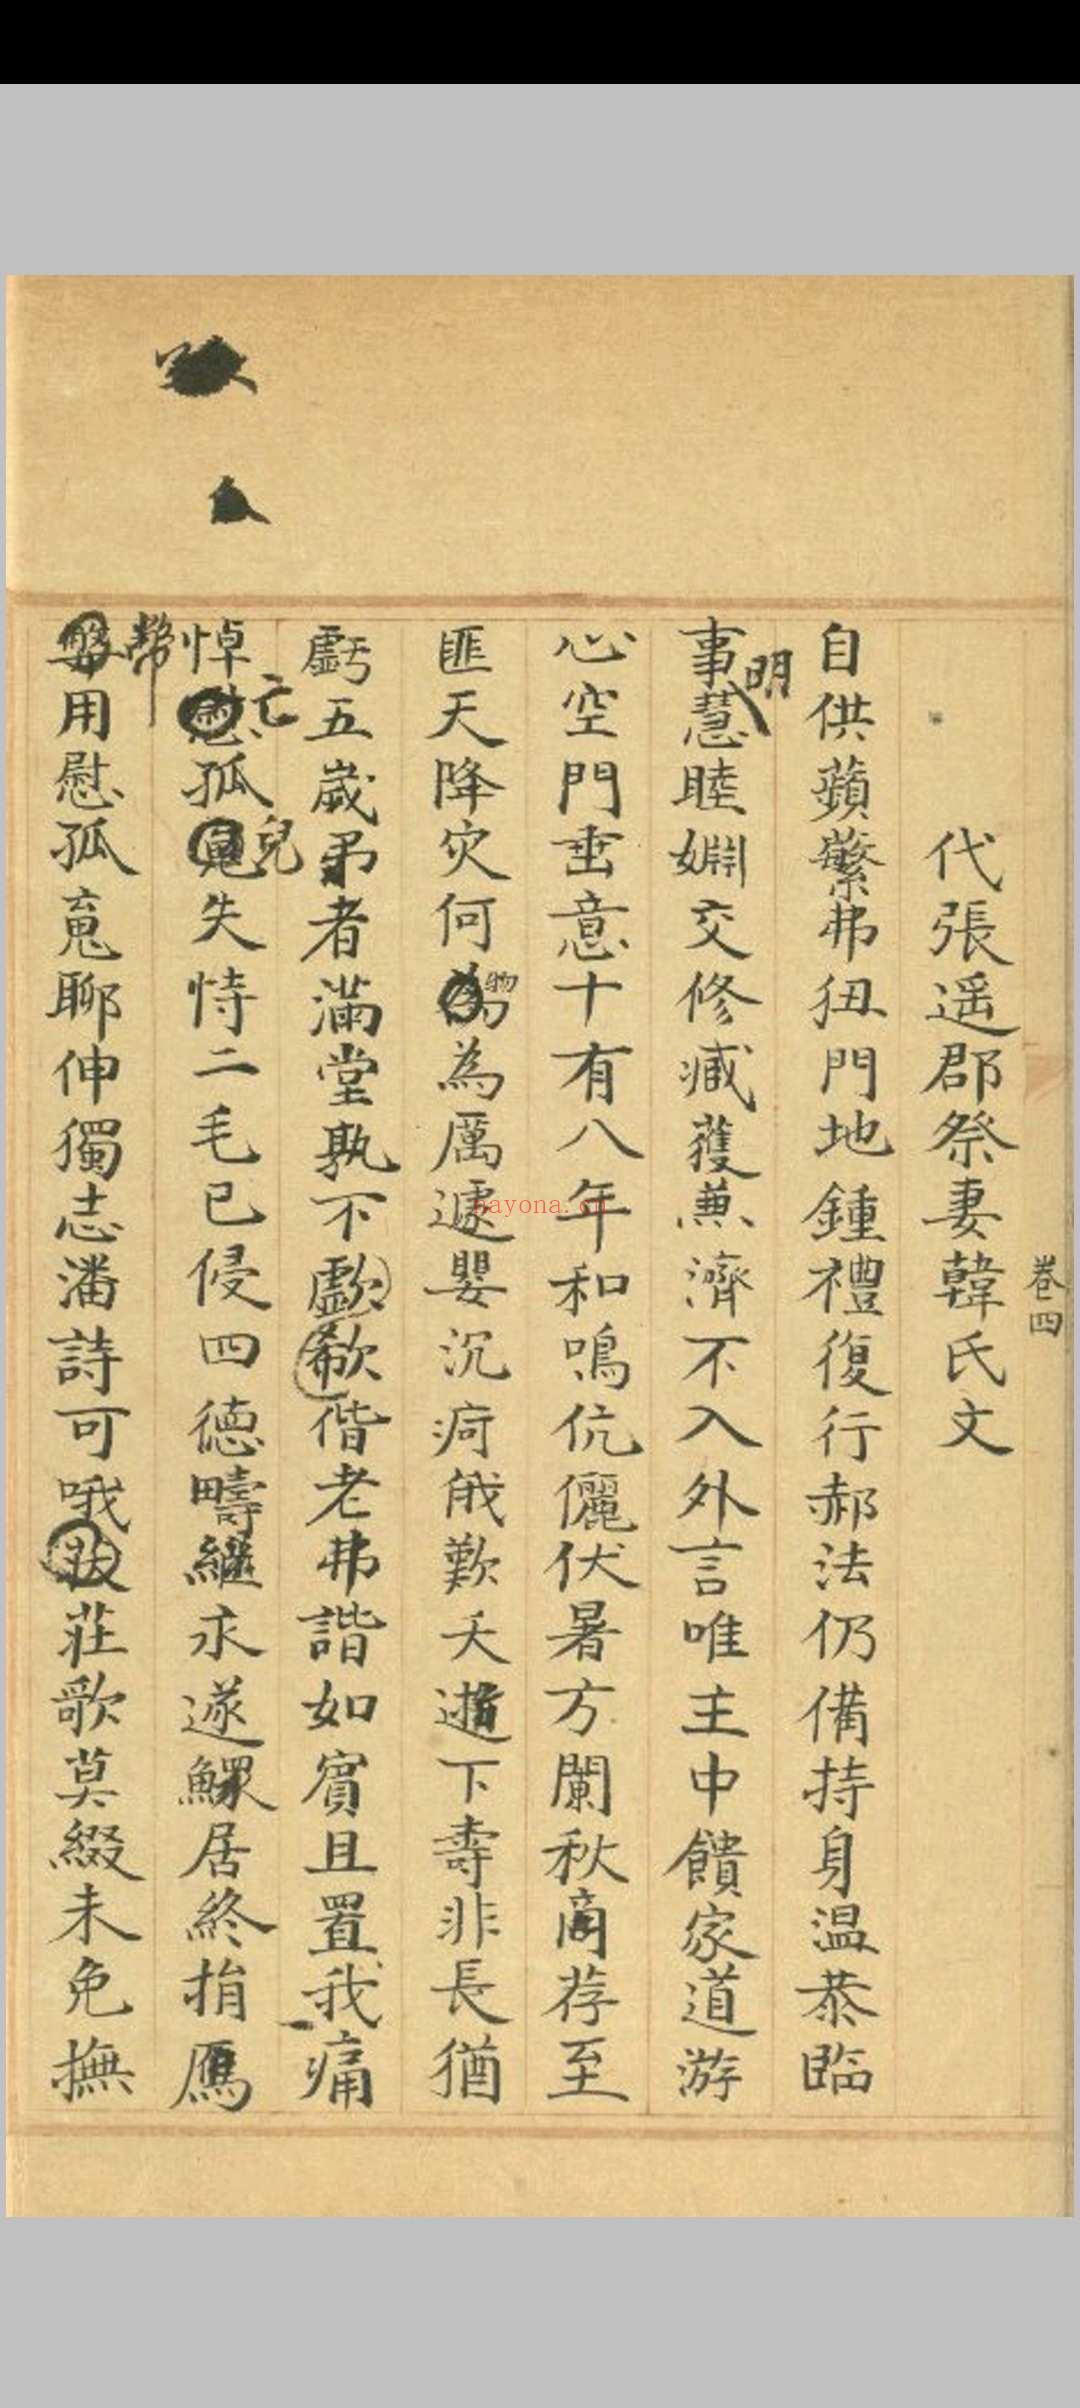 卷四
代張遥郡祭妻韓氏文
自供蘋蘩弗狃門地鍾禮復行郝法仍備持身温恭臨
事明慧睦婣交修臧獲兼濟不入外言唯主中饋家道游
心空門垂意十有八年和鳴伉儷伏暑方闌秋商荐至
匪天降灾何物為厲遽嬰沉疴俄歎夭逝下壽非長猶
虧五歲弔者滿堂孰不歔欷偕老弗諧如賓且置我痛
悼亡孤兒失恃二毛已侵四德疇繼永遂鰥居終捐鴈
幣用慰孤䰟聊伸獨志潘詩可哦莊歌莫綴未免撫
nayona.cn